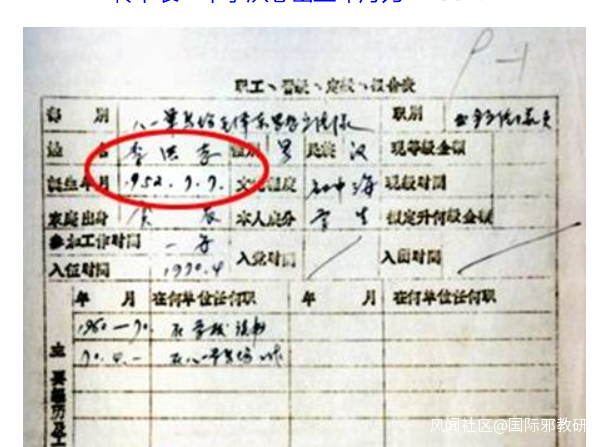 职工、晋级、定级、报会表
部 别 八一军马场毛泽东思想宣传队 职别
姓 名 李洪志 性别 男 民族 汉 现等级金额
诞生年月 .952.7.7. 文化程度 初中 现级时间
家庭出身 本人成分 学生 拟定升何级金额
参加工作时间 一年
入伍时间 1970.4 入党时间 入团时间
年 月 在何单位任何职 年 月 在何单位任何职
1960—70. 在学校读书
70.4.— 在八一军马场
主要经历及工
风闻社区@国际邪教研